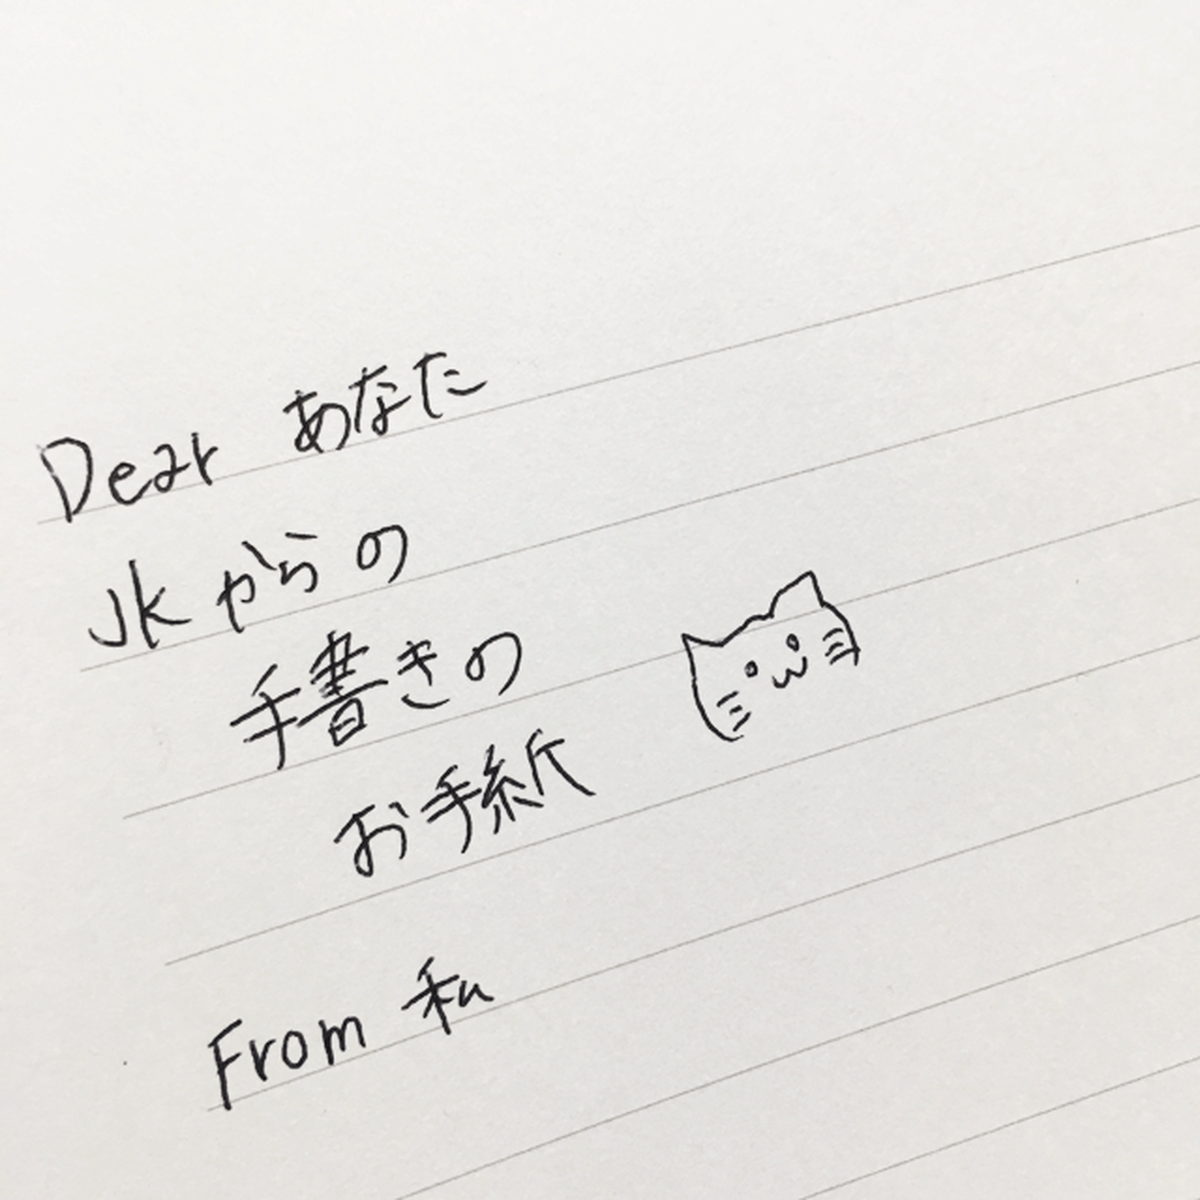 Dear あなた
JKからの
手書きの
お手紙
From 私